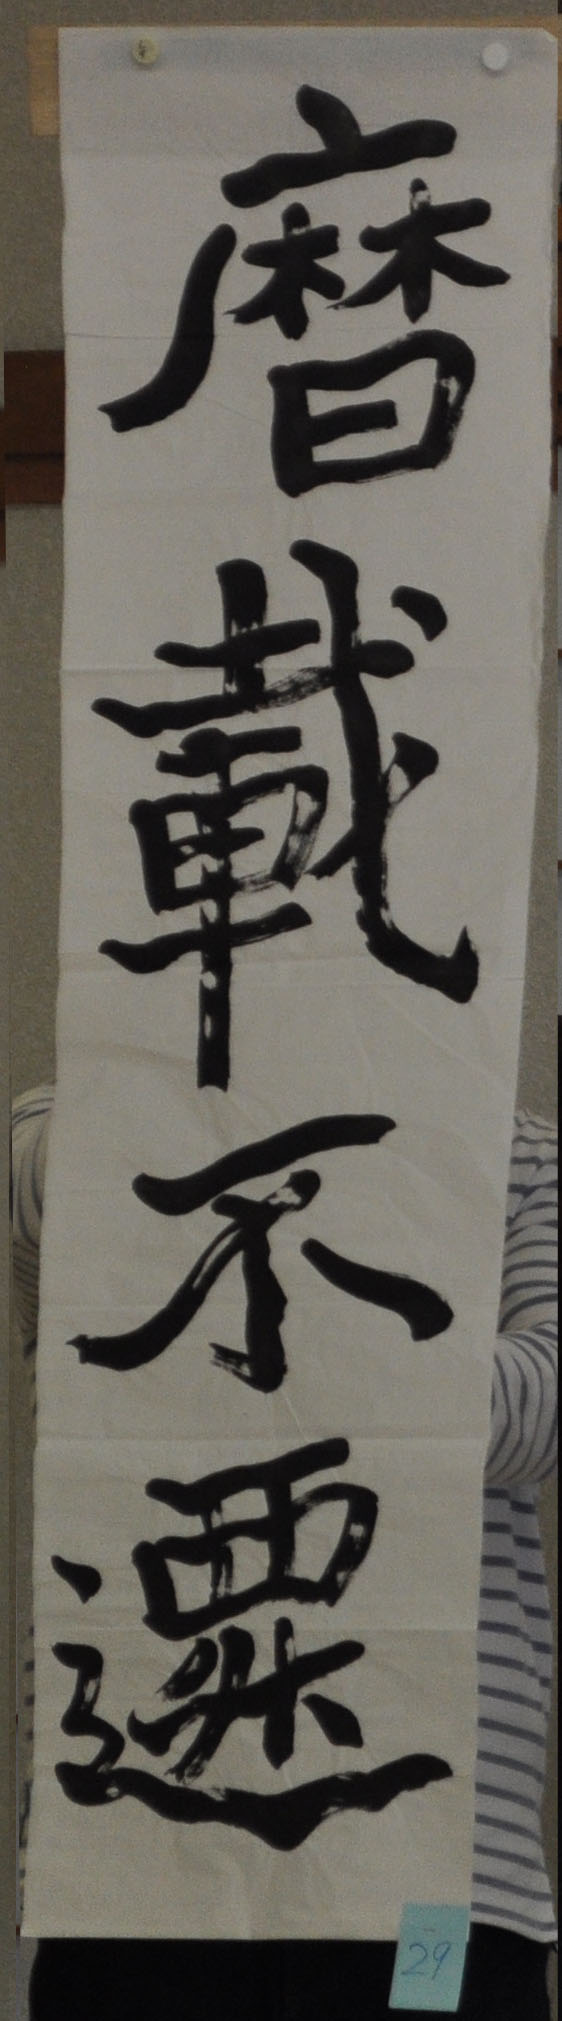 暦載不遷
29